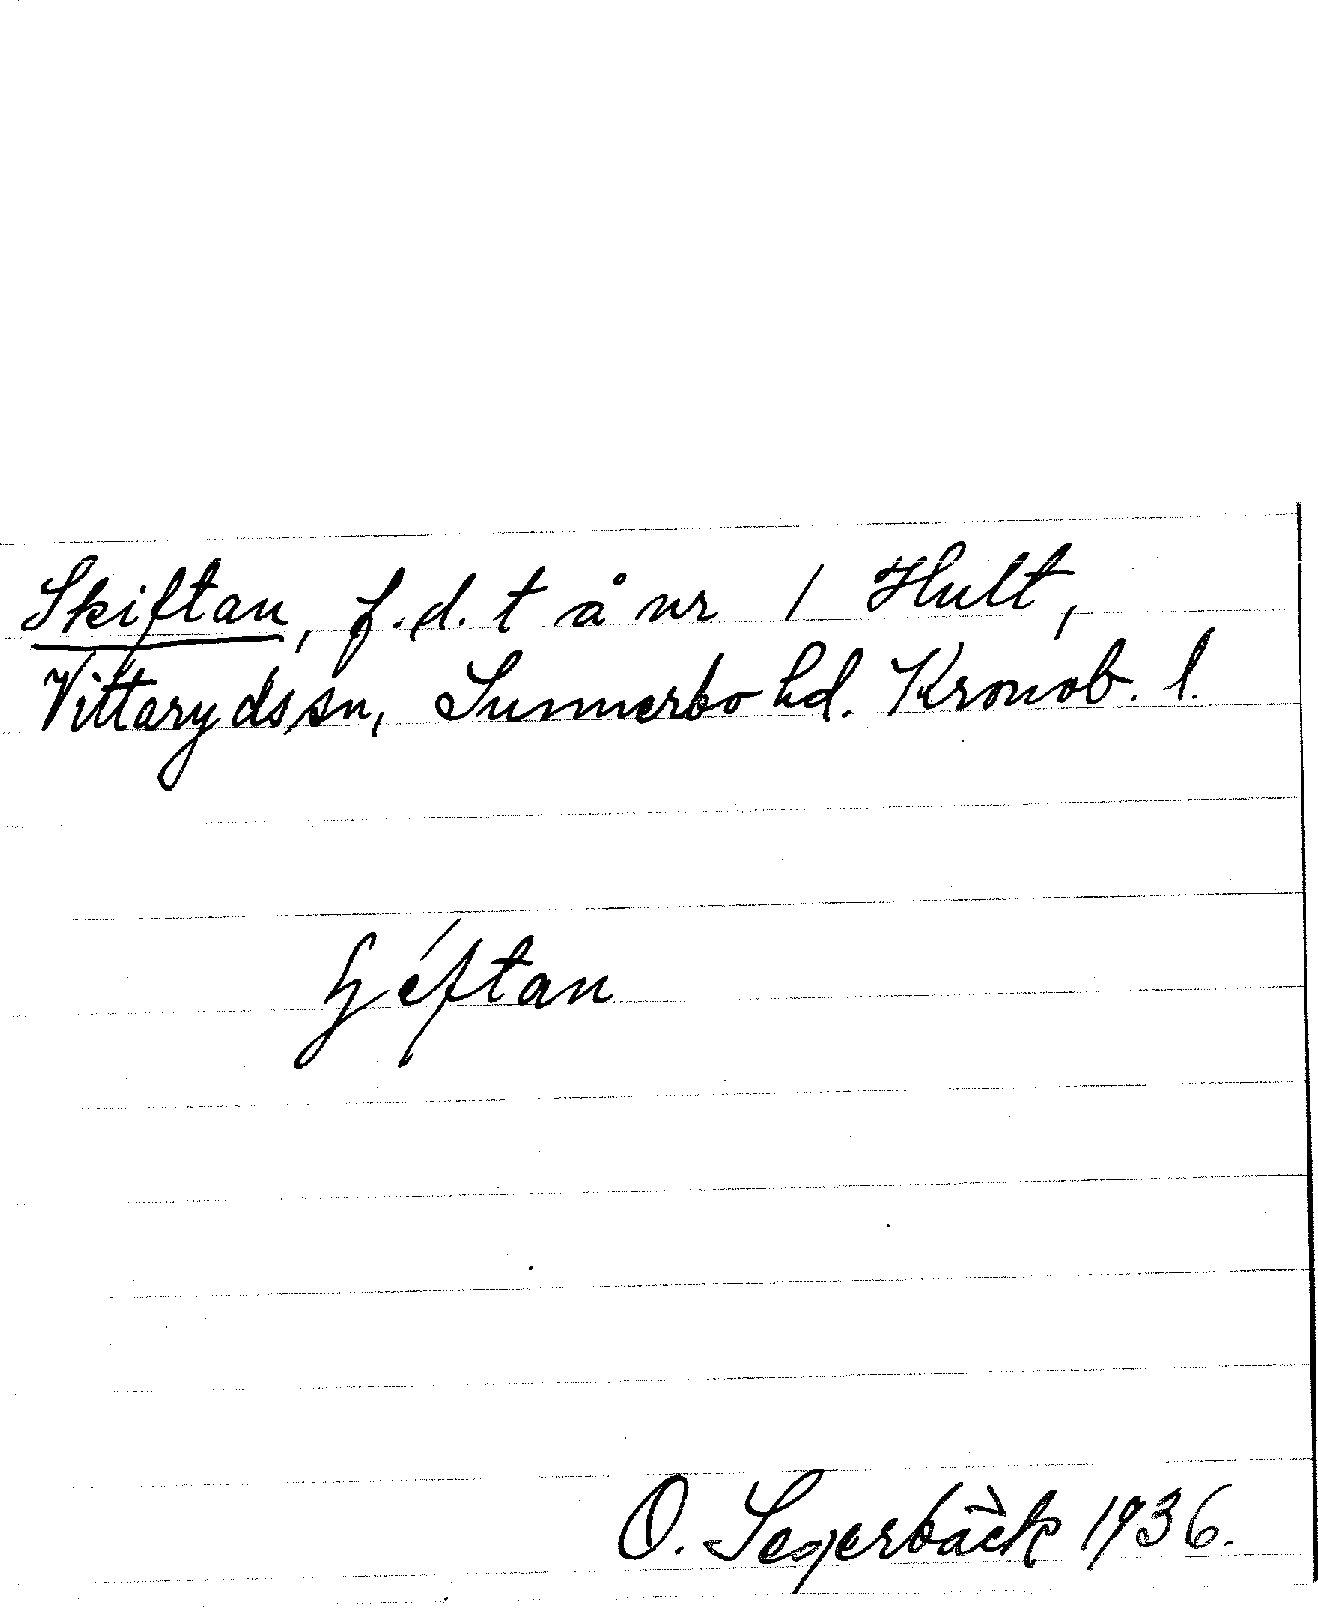 Skiftan, f.d. t å nr 1 Hult,
Vittaryds sn, Sunnerbo hd. Kronob. l.
ɧéftan
O. Segerbäck 1936.